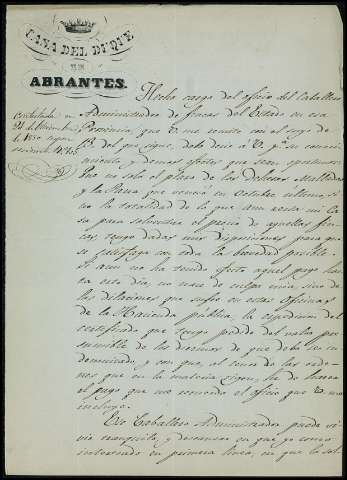 CASA DEL DUQUE
DE
ABRANTES.
Contestada en
24 de Noviembre
de 1850
Hecho cargo del oficio del Caballero
Administrador de fincas del Estado en esa
Provincia, que V. me remite con el suyo de
13 del que sigue, debo decir á V. pª su conoci-
miento, y demas efectos que sean oportunos
que no solo el plazo de las Dehesas
y la que venció en Octubre último, si-
no la totalidad de lo que aun resta mi Ca-
sa para solventar el precio de aquellas fin-
cas, tengo dadas mis disposiciones para que
se satisfaga con toda la brevedad posible.
Si aun no ha tenido efecto aquel pago has-
ta este dia, no nace de culpa mia, sino de
las dilaciones que sufre en estas Oficinas
de la Hacienda pública, la espedicion del
certificado que tengo pedido del valor
de los diezmos de que debo ser in-
demnizado, y con que, al tenor de las orde-
nes que en la materia rigen, he de hacer
el pago que me recuerda el oficio que V. me
incluye.
Ese Caballero Administrador puede vi-
vir tranquilo, y descansar en que yo como
interesado en primera linea, en que la sol-